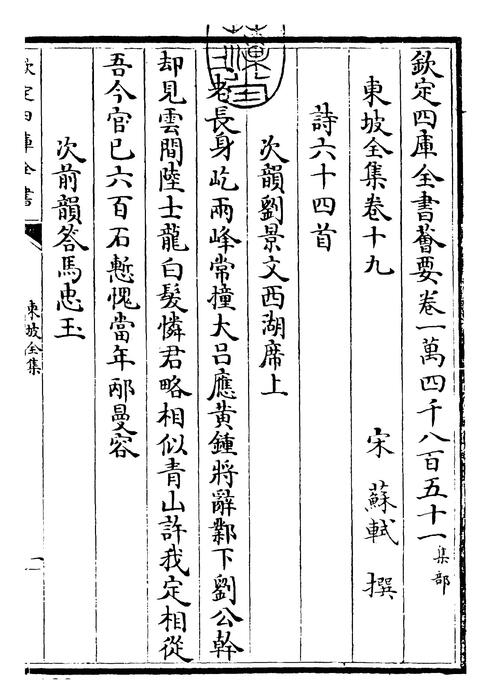 欽定四庫全書薈要卷一萬四千八百五十一集部
東坡全集卷十九
宋 蘇軾 撰
詩六十四首
次韻劉景文西湖席上
二老長身屹兩峰常撞大呂應黄鍾將辭鄴下劉公幹
却見雲間陸士龍白髮憐君略相似青山許我定相從
吾今官已六百石慙愧當年邴曼容
次前韻答馬忠玉
欽定四庫全書
東坡全集
一